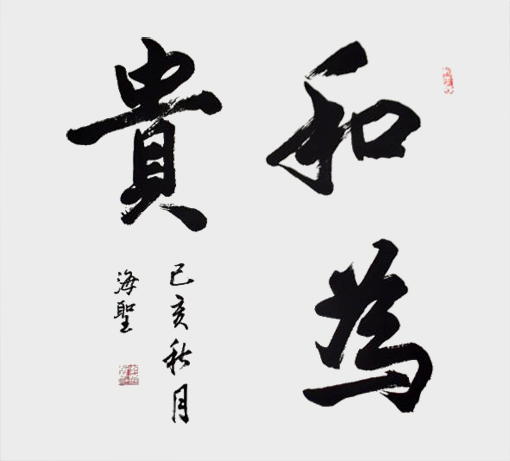 和為
貴
己亥秋月
海聖